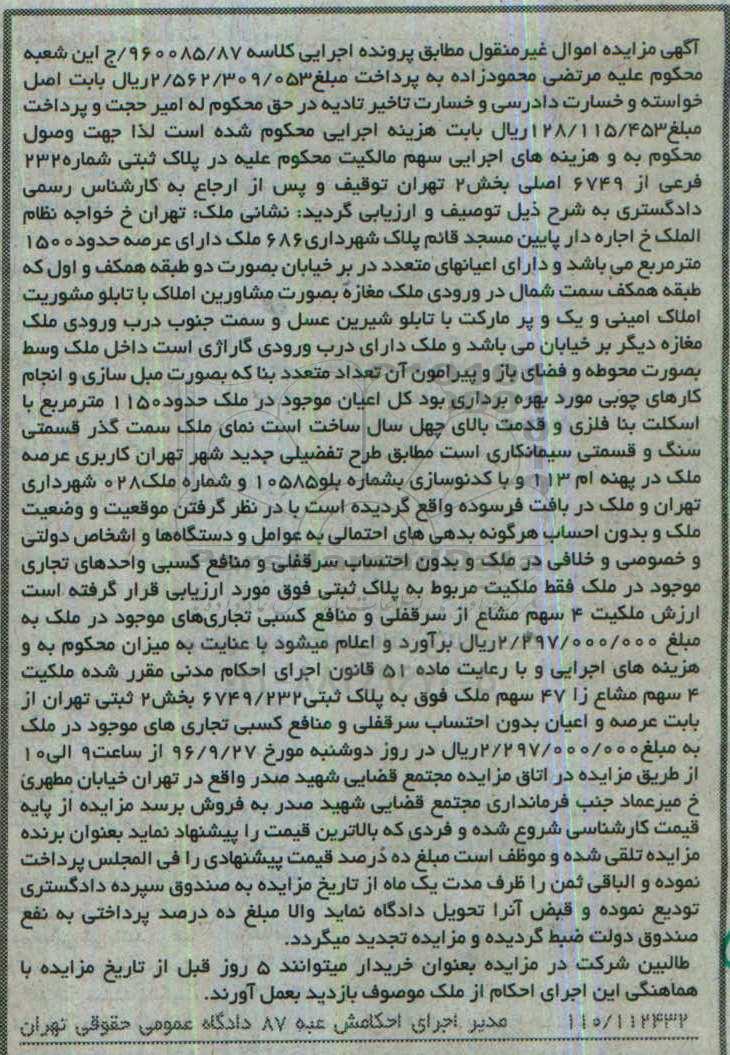 آگهی مزایده اموال غیرمنقول مطابق پرونده اجرایی کلاسه ۹۶۰۰۸۵/۸۷/ج این شعبه
محکوم علیه مرتضی محمودزاده به پرداخت مبلغ۲/۵۶۲/۳۰۹/۰۵۳ریال بابت اصل
خواسته و خسارت دادرسی و خسارت تاخیر تادیه در حق محکوم له امیر حجت و پرداخت
مبلغ۱۲۸/۱۱۵/۴۵۳ریال بابت هزینه اجرایی محکوم شده است لذا جهت وصول
محکوم به و هزینه های اجرایی سهم مالکیت محکوم علیه در پلاک ثبتی شماره۲۳۲
فرعی از ۶۷۴۹ اصلی بخش۲ تهران توقیف و پس از ارجاع به کارشناس رسمی
دادگستری به شرح ذیل توصیف و ارزیابی گردید: نشانی ملک: تهران خ خواجه نظام
الملک خ اجاره دار پایین مسجد قائم پلاک شهرداری۶۸۶ ملک دارای عرصه حدود۱۵۰۰
مترمربع می باشد و دارای اعیانهای متعدد در بر خیابان بصورت دو طبقه همکف و اول که
طبقه همکف سمت شمال در ورودی ملک مغازه بصورت مشاورین املاک با تابلو مشوریت
املاک امینی و یک و پر مارکت با تابلو شیرین عسل و سمت جنوب درب ورودی ملک
مغازه دیگر بر خیابان می باشد و ملک دارای درب ورودی گاراژی است داخل ملک وسط
بصورت محوطه و فضای باز و پیرامون آن تعداد متعدد بنا که بصورت مبل سازی و انجام
کارهای چوبی مورد بهره برداری بود کل اعیان موجود در ملک حدود۱۱۵۰ مترمربع با
اسکلت بنا فلزی و قدمت بالای چهل سال ساخت است نمای ملک سمت گذر قسمتی
سنگ و قسمتی سیمانکاری است مطابق طرح تفضیلی جدید شهر تهران کاربری عرصه
ملک در پهنه ام ۱۱۳ و با کدنوسازی بشماره بلو۱۰۵۸۵ و شماره ملک۰۲۸ شهرداری
تهران و ملک در بافت فرسوده واقع گردیده است با در نظر گرفتن موقعیت و وضعیت
ملک و بدون احساب هرگونه بدهی های احتمالی به عوامل و دستگاهها و اشخاص دولتی
و خصوصی و خلافی در ملک و بدون احتساب سرقفلی و منافع کسبی واحدهای تجاری
موجود در ملک فقط ملکیت مربوط به پلاک ثبتی فوق مورد ارزیابی قرار گرفته است
ارزش ملکیت ۴ سهم مشاع از سرقفلی و منافع کسبی تجاری‌های موجود در ملک به
مبلغ ۲/۲۹۷/۰۰۰/۰۰۰ریال برآورد و اعلام میشود با عنایت به میزان محکوم به و
هزینه های اجرایی و با رعایت ماده ۵۱ قانون اجرای احکام مدنی مقرر شده ملکیت
۴ سهم مشاع زا ۴۷ سهم ملک فوق به پلاک ثبتی۶۷۴۹/۲۳۲ بخش۲ ثبتی تهران از
بابت عرصه و اعیان بدون احتساب سرقفلی و منافع کسبی تجاری های موجود در ملک
به مبلغ۲/۲۹۷/۰۰۰/۰۰۰ریال در روز دوشنبه مورخ ۹۶/۹/۲۷ از ساعت۹ الی۱۰
از طریق مزایده در اتاق مزایده مجتمع قضایی شهید صدر واقع در تهران خیابان مطهری
خ میرعماد جنب فرمانداری مجتمع قضایی شهید صدر به فروش برسد مزایده از پایه
قیمت کارشناسی شروع شده و فردی که بالاترین قیمت را پیشنهاد نماید بعنوان برنده
مزایده تلقی شده و موظف است مبلغ ده درصد قیمت پیشنهادی را فی المجلس پرداخت
نموده و الباقی ثمن را ظرف مدت یک ماه از تاریخ مزایده به صندوق سپرده دادگستری
تودیع نموده و قبض آنرا تحویل دادگاه نماید والا مبلغ ده درصد پرداختی به نفع
صندوق دولت ضبط گردیده و مزایده تجدید میگردد.
طالبین شرکت در مزایده بعنوان خریدار میتوانند ۵ روز قبل از تاریخ مزایده با
هماهنگی این اجرای احکام از ملک موصوف بازدید بعمل آورند.
۱۱۰/۱۱۲۴۳۲ مدیر اجرای احکامش عبه ۸۷ دادگاه عمومی حقوقی تهران